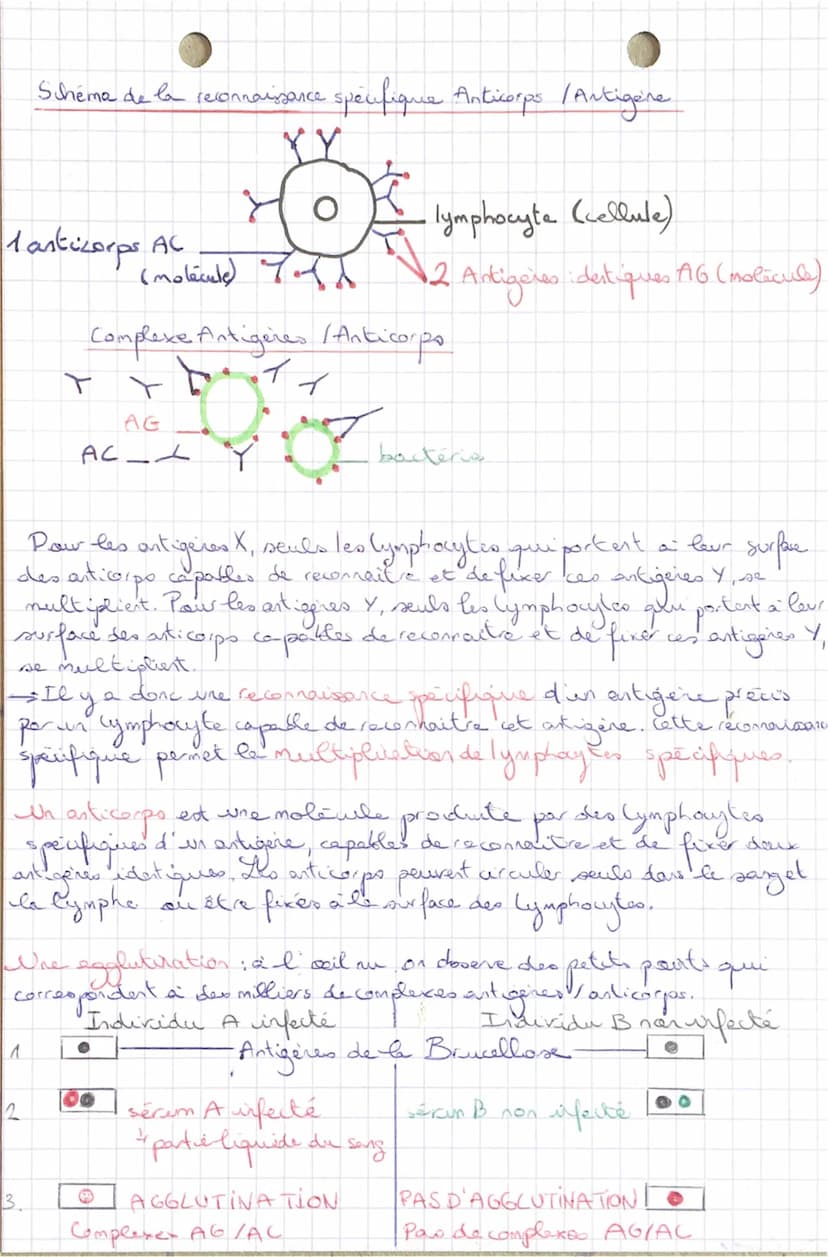 Schéma de la reconnaissance spécifique Anticorps / Antigène
lymphocyte (cellule)
1 anticorps AC
(molécule)
2 Antigènes identiques AG (molécule)
Complexe Antigènes / Anticorps
AG
AC
bactérie
Pour les antigènes X, seuls les lymphocytes qui portent à leur surface
des anticorps capables de reconnaitre et de fixer ces antigènes Y, se
multiplient. Pour les antigènes Y, seuls les lymphocytes qui portent à leur
surface des anticorps capables de reconnaitre et de fixer ces antigènes Y,
se multiplient.
→ Il y a donc une reconnaissance spécifique d'un antigène précis
par un lymphocyte capable de reconnaitre cet antigène. Cette reconnaissance
spécifique permet la multiplication de lymphocytes spécifiques.
Un anticorps est une molécule produite par des lymphocytes
spécifiques d'un antigène, capables de reconnaitre et de fixer deux
antigènes identiques. Les anticorps peuvent circuler seuls dans le sang et
la lymphe ou être fixés à la surface des lymphocytes.
Une agglutination : à l'œil nu, on observe des petits points qui
correspondent à des milliers de complexes antigènes / anticorps.
Individu A infecté Individu B non infecté
1 Antigènes de la Brucellose
2 sérum A infecté sérum B non infecté
↳ partie liquide du sang
3. AGGLUTINATION PAS D'AGGLUTINATION
Complexes AG / AC Pas de complexes AG/AC